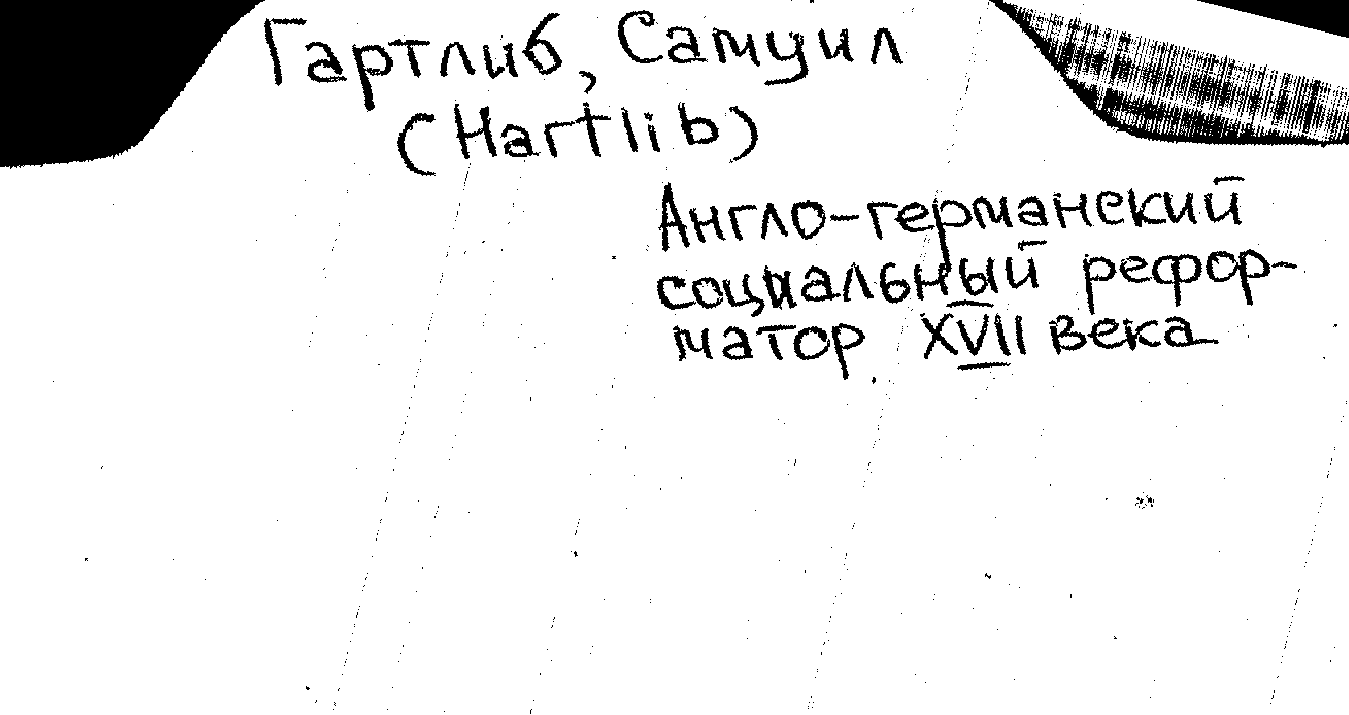 Гартлиб, Самуил
(Hartlib)
Англо-германский
социальный рефор-
матор XVII века